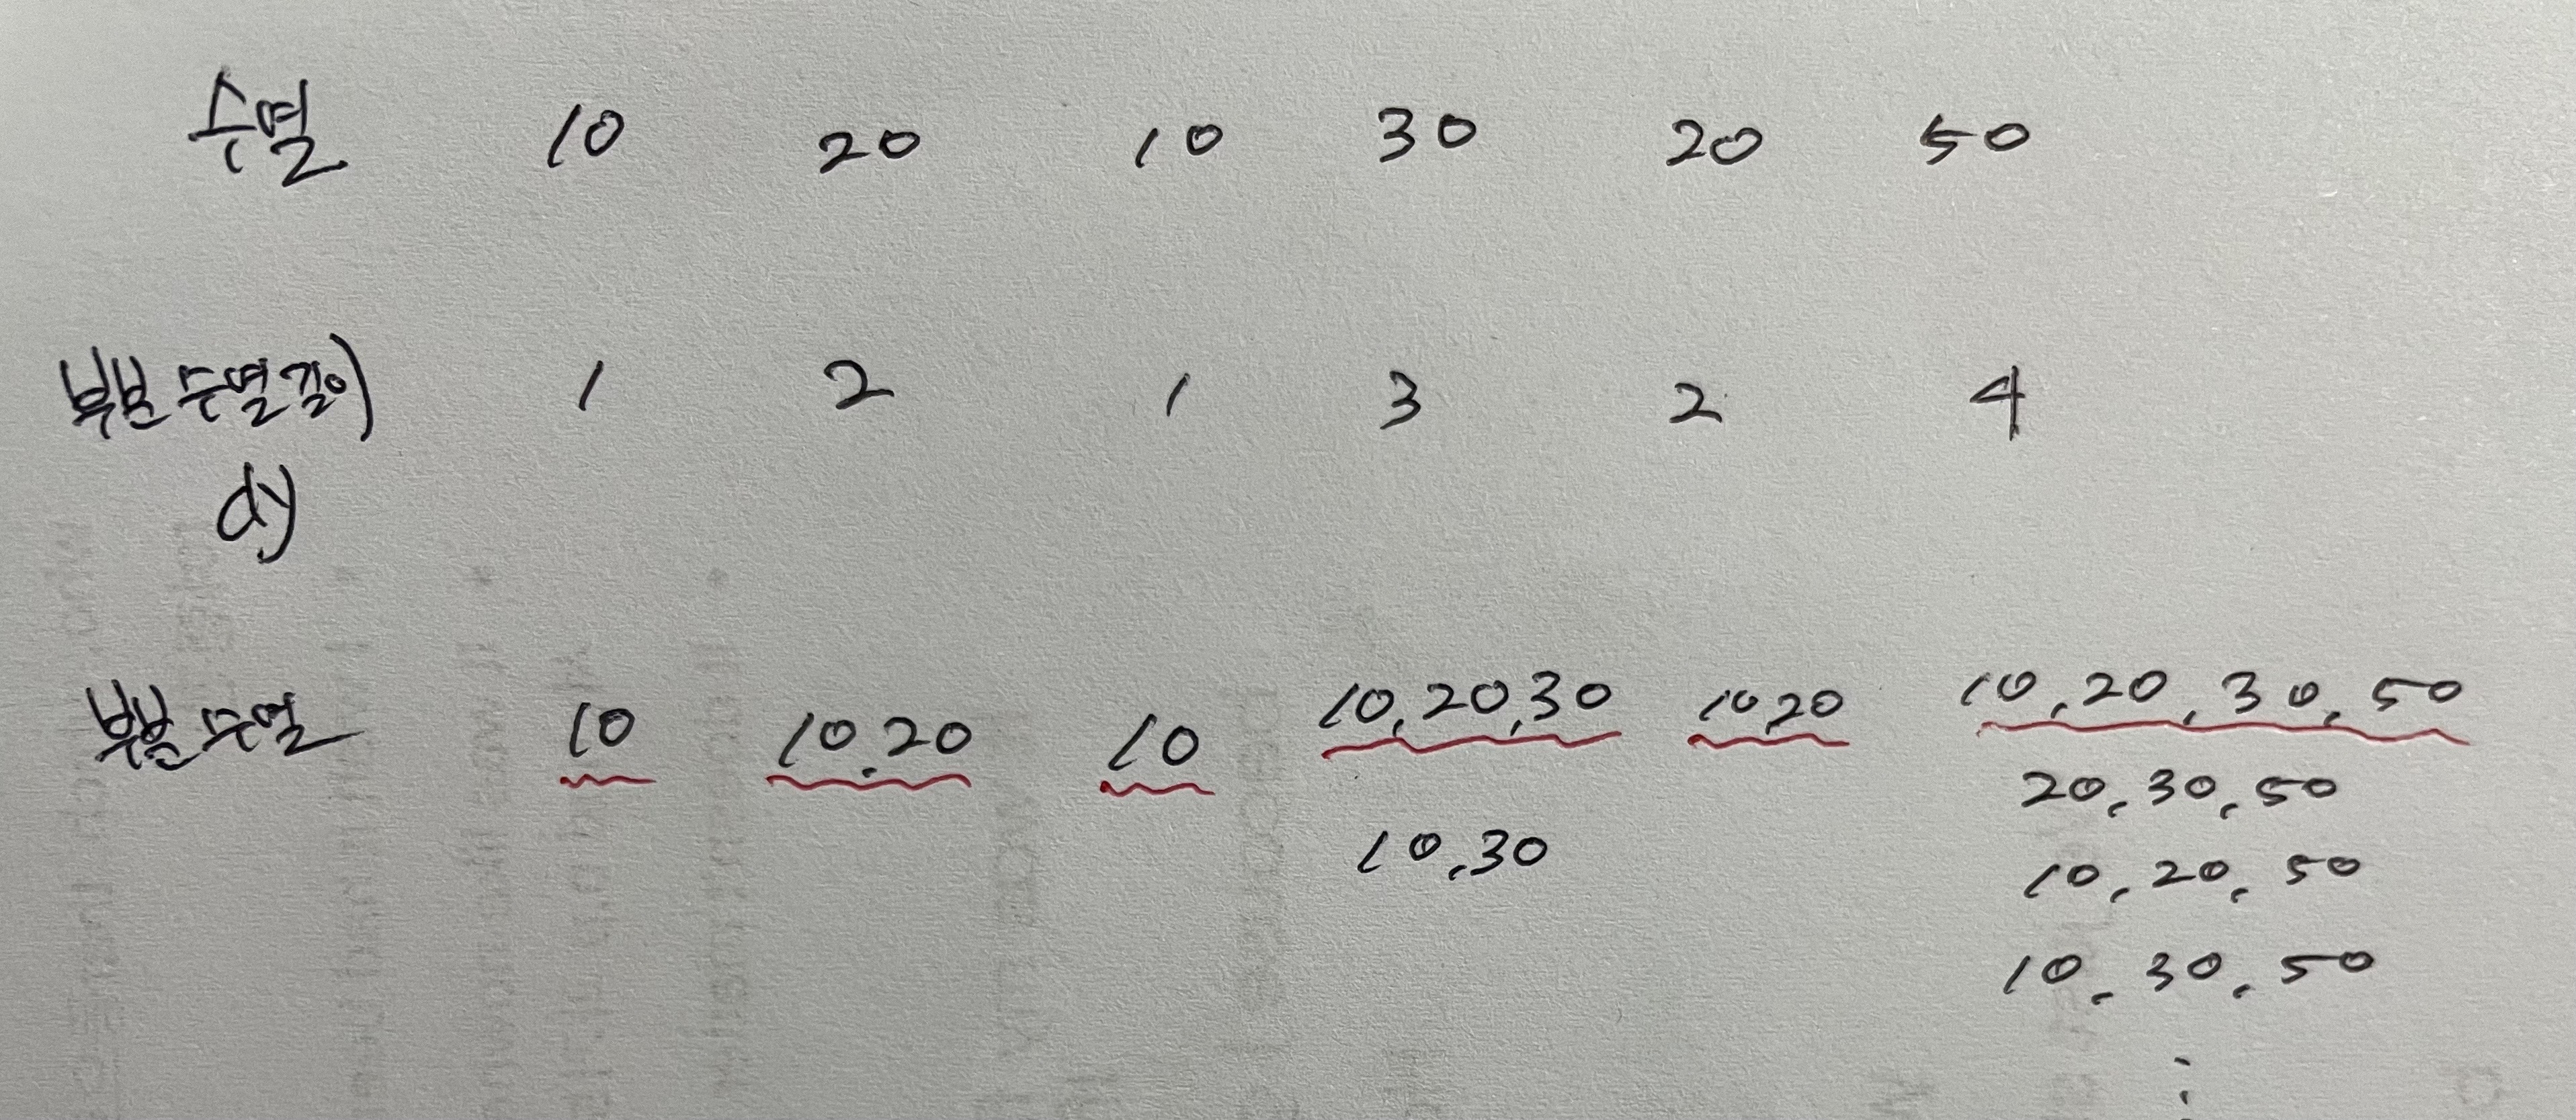 수열 10 20 10 30 20 50
부분 수열 길이 1 2 1 3 2 4
dy
부분 수열 10 10,20 10 10,20,30 10,20 10,20,30,50
10,30 20,30,50
10,20,50
10,30,50
⋮